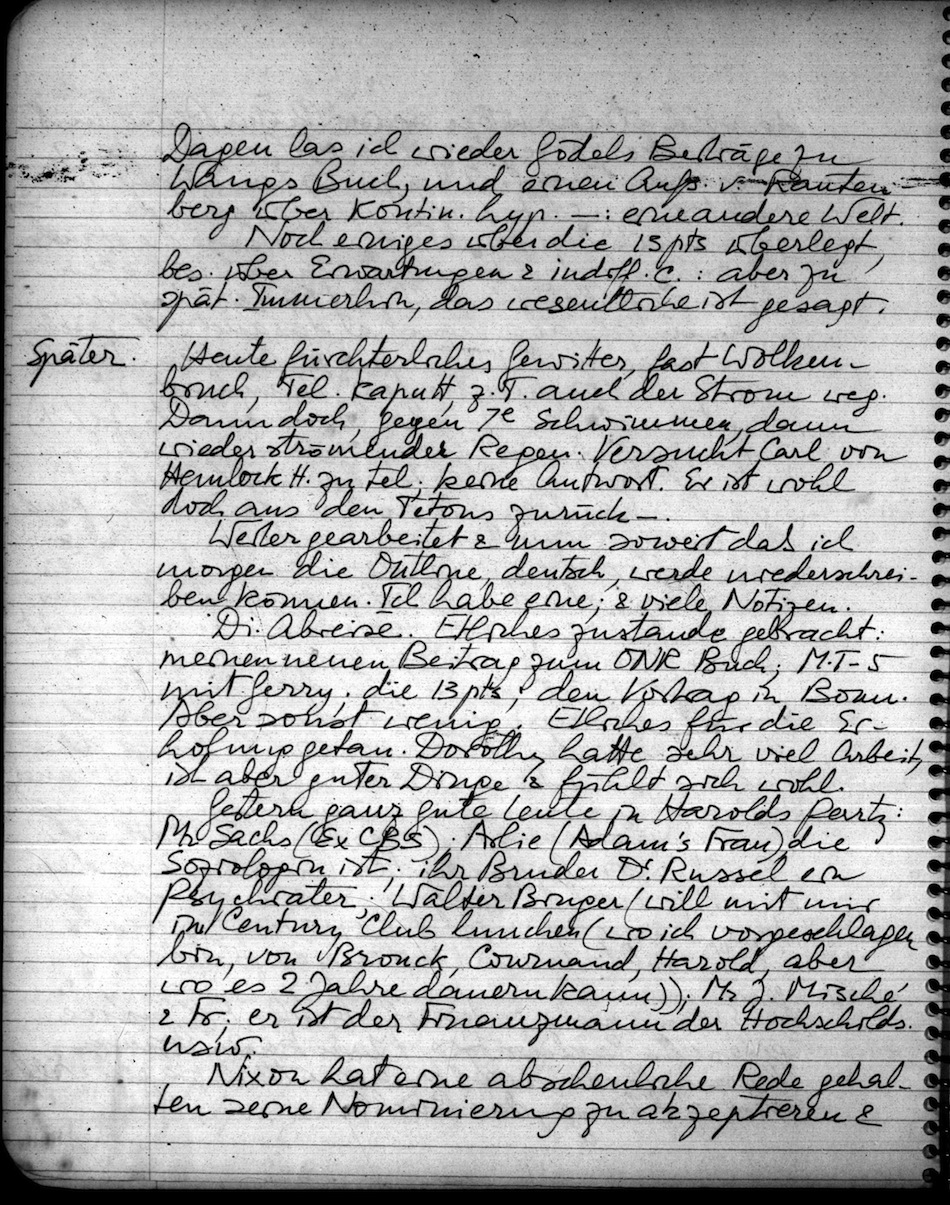 Dagen las ich wieder Gödels Beiträge zu
Wangs Buch, und einen Aufs. v. Rauten-
berg über Kontin. hyp. —: eine andere Welt.
Noch einiges über die 13 pts überlegt,
bes. über Erwartungen & indiff. c.: aber zu
spät. Immerhin, das wesentliche ist gesagt.
Später. Heute fürchterliches Gewitter, fast Wolken-
bruch, Tel. kaputt, z.T. auch der Strom weg.
Dann doch, gegen 7e Schwimmen, dann
wieder strömender Regen. Versucht Carl von
Hemlock H. zu tel. keine Antwort. Er ist wohl
doch aus den Tetons zurück —.
Weiter gearbeitet & nun soweit daß ich
morgen die Outline, deutsch, werde niederschrei-
ben können. Ich habe eine, & viele Notizen.
Di. Abreise. Etliches zustande gebracht:
meinen neuen Beitrag zum ONR Buch; M.T-5
mit Gerry, die 13 pts, den Vortrag in Bonn.
Aber sonst wenig. Etliches für die Er-
holung getan. Dorothy hatte sehr viel Arbeit,
ist aber guter Dinge & fühlt sich wohl.
Gestern ganz gute Leute in Harolds Party:
Mr Sachs (Ex CBS). Arlie (Adam's Frau) die
Soziologin ist; ihr Bruder Dr. Russel ein
Psychiater. Walter (will mit mir
im Century Club lunchen (wo ich vorgeschlagen
bin, von Bronck, Cournand, Harold, aber
wo es 2 Jahre dauern kann)); Mr J. Misché
& Fr., er ist der Finanzmann der Hochschilds.
usw.
Nixon hat eine abscheuliche Rede gehal-
ten seine Nominierung zu akzeptieren &